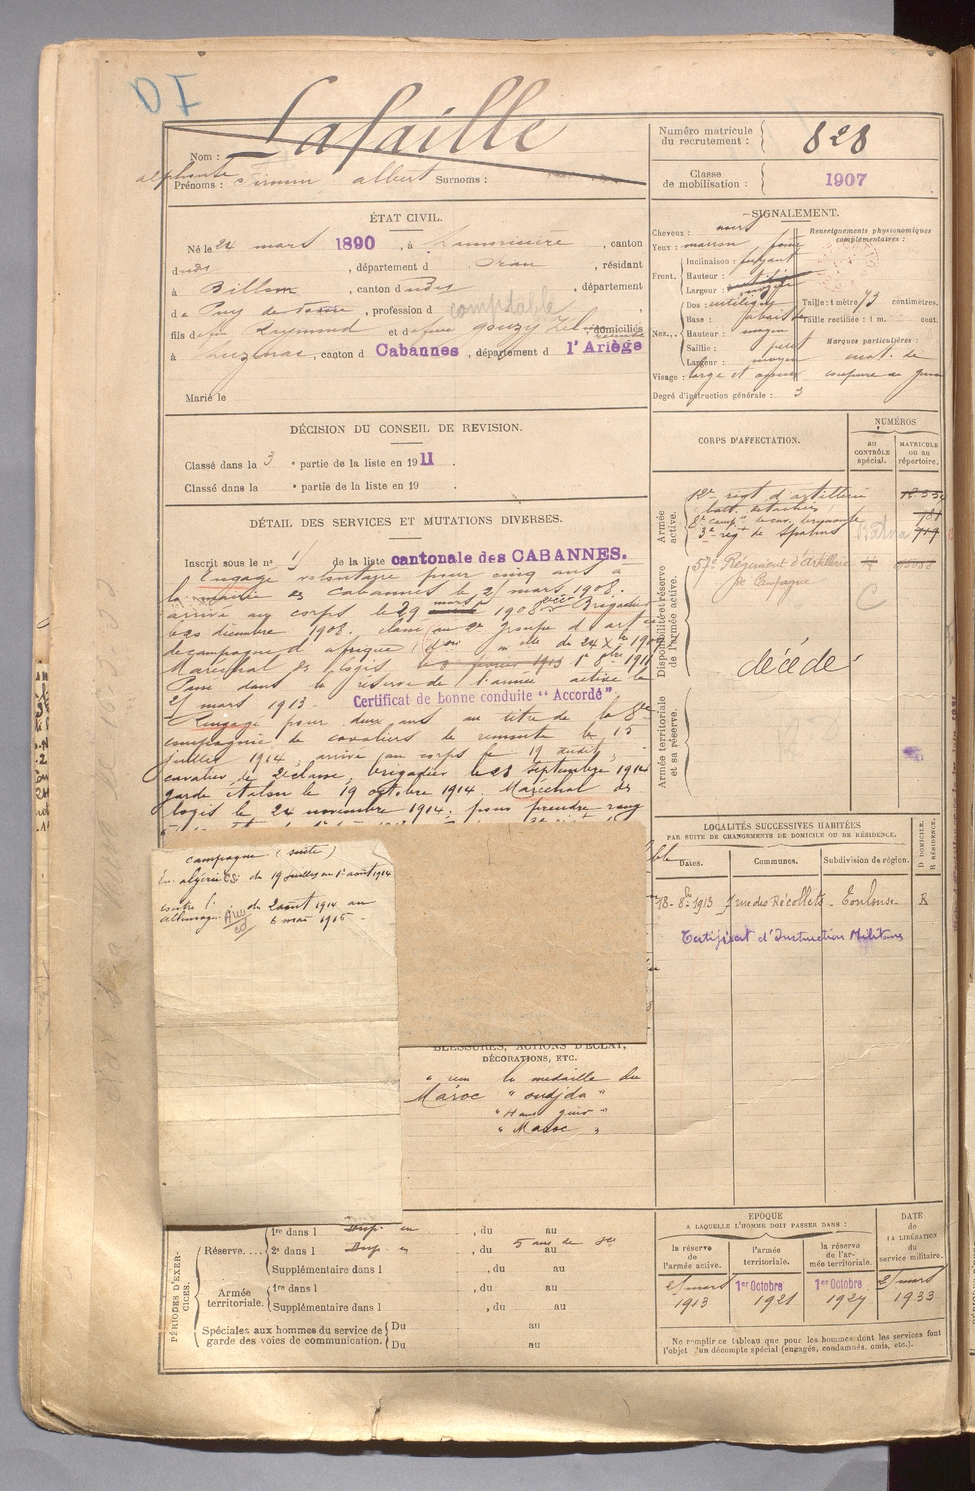 Lafaille
Nom :
alphonse
Prénoms : Firmin albert Surnoms :
Numéro matricule
du recrutement : 828
Classe
de mobilisation : 1907
ÉTAT CIVIL.
Né le 24 mars 1890, à Lamoricière, canton
dudit, département d Oran, résidant
à Billom, canton dudit, département
de Puy de Dome, profession d comptable,
fils de feu Raymond et de feue gouzy domiciliés
à Luzenac, canton d Cabannes, département d l'Ariège
Marié le
SIGNALEMENT.
Cheveux : noirs
Yeux : marron foncé
Front. Inclinaison : fuyant
Hauteur :
Largeur : moyen
Nez. Dos : rectiligne
Base : abaissée
Hauteur : moyen
Saillie : petit
Largeur : moyen
Visage : large et osseux
Degré d'instruction générale : 3
Renseignements physionomiques
complémentaires :
Taille : 1 mètre 73 centimètres.
Taille rectifiée : 1 m. cent.
Marques particulières :
cicat. de
coupure au
DÉCISION DU CONSEIL DE REVISION.
Classé dans la 3e partie de la liste en 1911.
Classé dans la e partie de la liste en 19 .
DÉTAIL DES SERVICES ET MUTATIONS DIVERSES.
Inscrit sous le n° 1 de la liste cantonale des CABANNES.
Engagé volontaire pour cinq ans à
la mairie es Cabannes le 21 mars 1908.
arrivé au corps le 29 mars 1908 Brigadier
le 20 décembre 1908. classé au 2e Groupe d'art
de campagne d'afrique mlle du 24 Xbre 1909
Maréchal es logis le 8 février 1913 1er 8bre 1911
Passé dans la réserve de l'armée active le
21 mars 1913. Certificat de bonne conduite "Accordé"
Rengagé pour deux ans au titre de la 8e
compagnie de cavaliers de remonte le 15
juillet 1914, arrivé au corps le 19 dudit,
cavalier de 2e classe, brigadier le 23 septembre 1914
garde étalon le 19 octobre 1914. Maréchal des
logis le 24 novembre 1914. pour prendre rang
campagne (suite)
En algérie du 19 juillet au 1er août 1914
contre l' du 2 août 1914 au
allemagne 6 mai 1915 -
CORPS D'AFFECTATION.
NUMÉROS
au
CONTRÔLE
spécial.
MATRICULE
ou au
répertoire.
Armée
active.
12e régt d'artillerie
batt. détachées
8e comp. de cav. de remonte 781
3e rég. de Spahis 719
Disponibilité et réserve
de l'armée active.
57e Régiment d'Artillerie
de Campagne
C
décédé
Armée territoriale
et sa réserve.
LOCALITÉS SUCCESSIVES HABITÉES
PAR SUITE DE CHANGEMENTS DE DOMICILE OU DE RÉSIDENCE.
Dates. Communes. Subdivision de région. D DOMICILE. R RÉSIDENCE.
18-8bre 1913 rue des Récollets - Toulouse - R
Certificat d'Instruction Militaire
BLESSURES, ACTIONS D'ÉCLAT,
DÉCORATIONS, ETC.
la médaille du
Maroc "oudjda"
"Maroc"
PÉRIODES D'EXERCICES.
Réserve.... 1re dans l Disp. , du au
2e dans l Disp. , du 5 ans de au
Supplémentaire dans l , du au
Armée
territoriale. 1re dans l , du au
Supplémentaire dans l , du au
Spéciales aux hommes du service de
garde des voies de communication. Du au
Du au
EPOQUE
A LAQUELLE L'HOMME DOIT PASSER DANS :
la réserve
de l'armée active.
l'armée
territoriale.
la réserve
de l'armée territoriale.
DATE
de
LA LIBÉRATION
du
service militaire.
21 mars
1913
1er Octobre
1921
1er Octobre
1927
21 mars
1933
Ne remplir ce tableau que pour les hommes dont les services font
l'objet d'un décompte spécial (engagés, condamnés, omis, etc.).